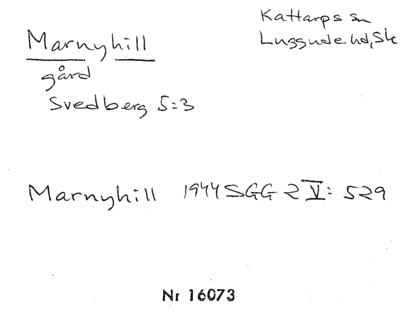 Kattarps sn
Luggude hd, Sk
Marnyhill
gård
Svedberg 5:3
Marnyhill 1944 SGG 2 V: 529
Nr 16073